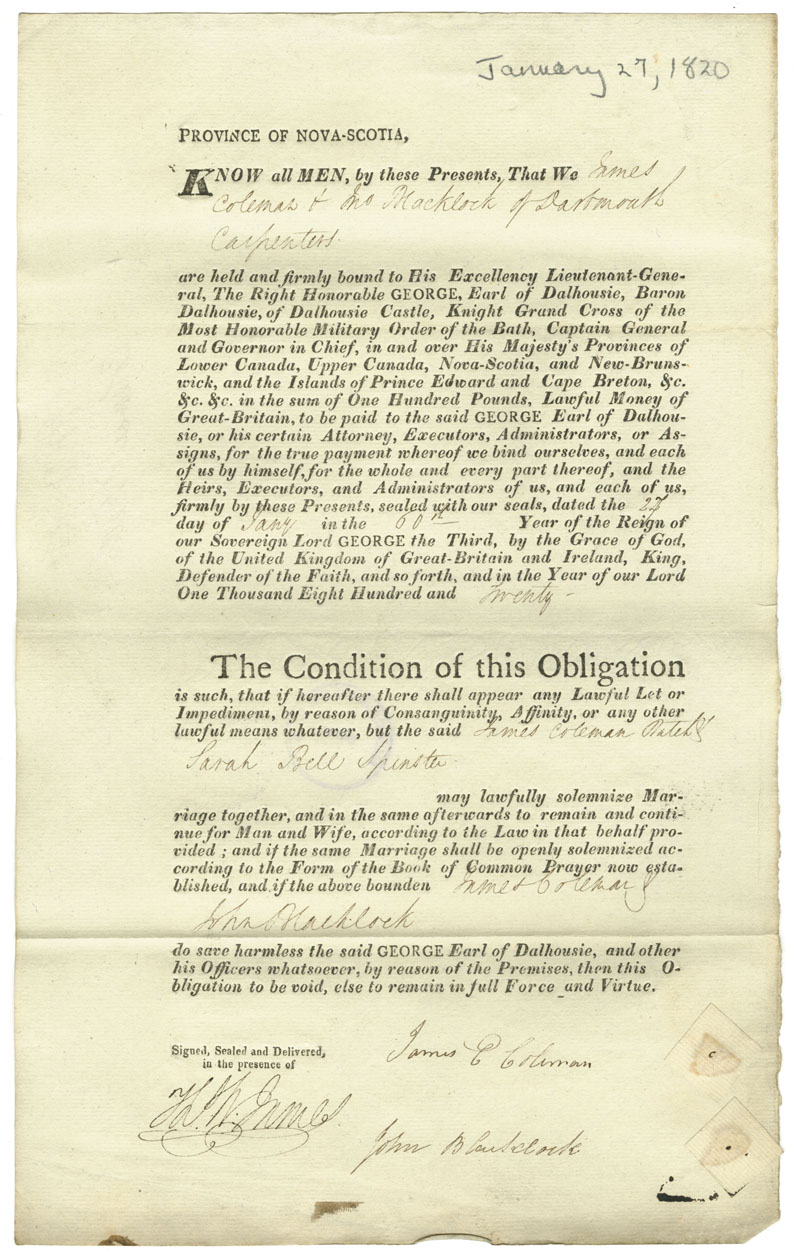 January 27, 1820
PROVINCE OF NOVA-SCOTIA,
KNOW all MEN, by these Presents, That We James
Coleman & Jno Blacklock of Dartmouth
Carpenters.
are held and firmly bound to His Excellency Lieutenant-Gene-
ral, The Right Honorable GEORGE, Earl of Dalhousie, Baron
Dalhousie, of Dalhousie Castle, Knight Grand Cross of the
Most Honorable Military Order of the Bath, Captain General
and Governor in Chief, in and over His Majesty's Provinces of
Lower Canada, Upper Canada, Nova-Scotia, and New-Bruns-
wick, and the Islands of Prince Edward and Cape Breton, &c.
&c. &c. in the sum of One Hundred Pounds, Lawful Money of
Great-Britain, to be paid to the said GEORGE Earl of Dalhou-
sie, or his certain Attorney, Executors, Administrators, or As-
signs, for the true payment whereof we bind ourselves, and each
of us by himself, for the whole and every part thereof, and the
Heirs, Executors, and Administrators of us, and each of us,
firmly by these Presents, sealed with our seals, dated the 27
day of Jany in the 60th Year of the Reign of
our Sovereign Lord GEORGE the Third, by the Grace of God,
of the United Kingdom of Great-Britain and Ireland, King,
Defender of the Faith, and so forth, and in the Year of our Lord
One Thousand Eight Hundred and Twenty -
The Condition of this Obligation
is such, that if hereafter there shall appear any Lawful Let or
Impediment, by reason of Consanguinity, Affinity, or any other
lawful means whatever, but the said James Coleman Batch &
Sarah Bell Spinster
may lawfully solemnize Mar-
riage together, and in the same afterwards to remain and conti-
nue for Man and Wife, according to the Law in that behalf pro-
vided ; and if the same Marriage shall be openly solemnized ac-
cording to the Form of the Book of Common Prayer now esta-
blished, and if the above bounden James Coleman &
John Blacklock
do save harmless the said GEORGE Earl of Dalhousie, and other
his Officers whatsoever, by reason of the Premises, then this O-
bligation to be void, else to remain in full Force and Virtue.
Signed, Sealed and Delivered,
in the presence of
James C Coleman
James
John Blacklock